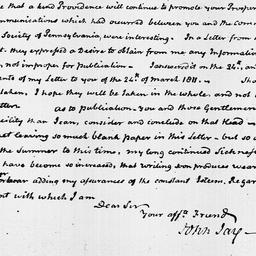 that a kind Providence will continue to promote your Prosper
mmunications which had occurred between you and the Comm
Society of Pennsylvania, were interesting. In a Letter from
t. they expressed a Desire to obtain from me any Informatio
not improper for publication. I answered it on the 24th. an
nts of my Letter to you of the 24th of March 1811. Sho
taken, I hope they will be taken in the whole, and not
tter as to publication. You and those Gentlemen
cility than I can, consider and conclude on that Head
et leaving so much blank paper in this Letter - but so
the Summer to this time, my long continued Sickness
have become so increased, that writing soon produces wear
orbear adding my assurances of the constant Esteem, Regar
nt with which I am
Dear Sir
your afft. Friend
John Jay